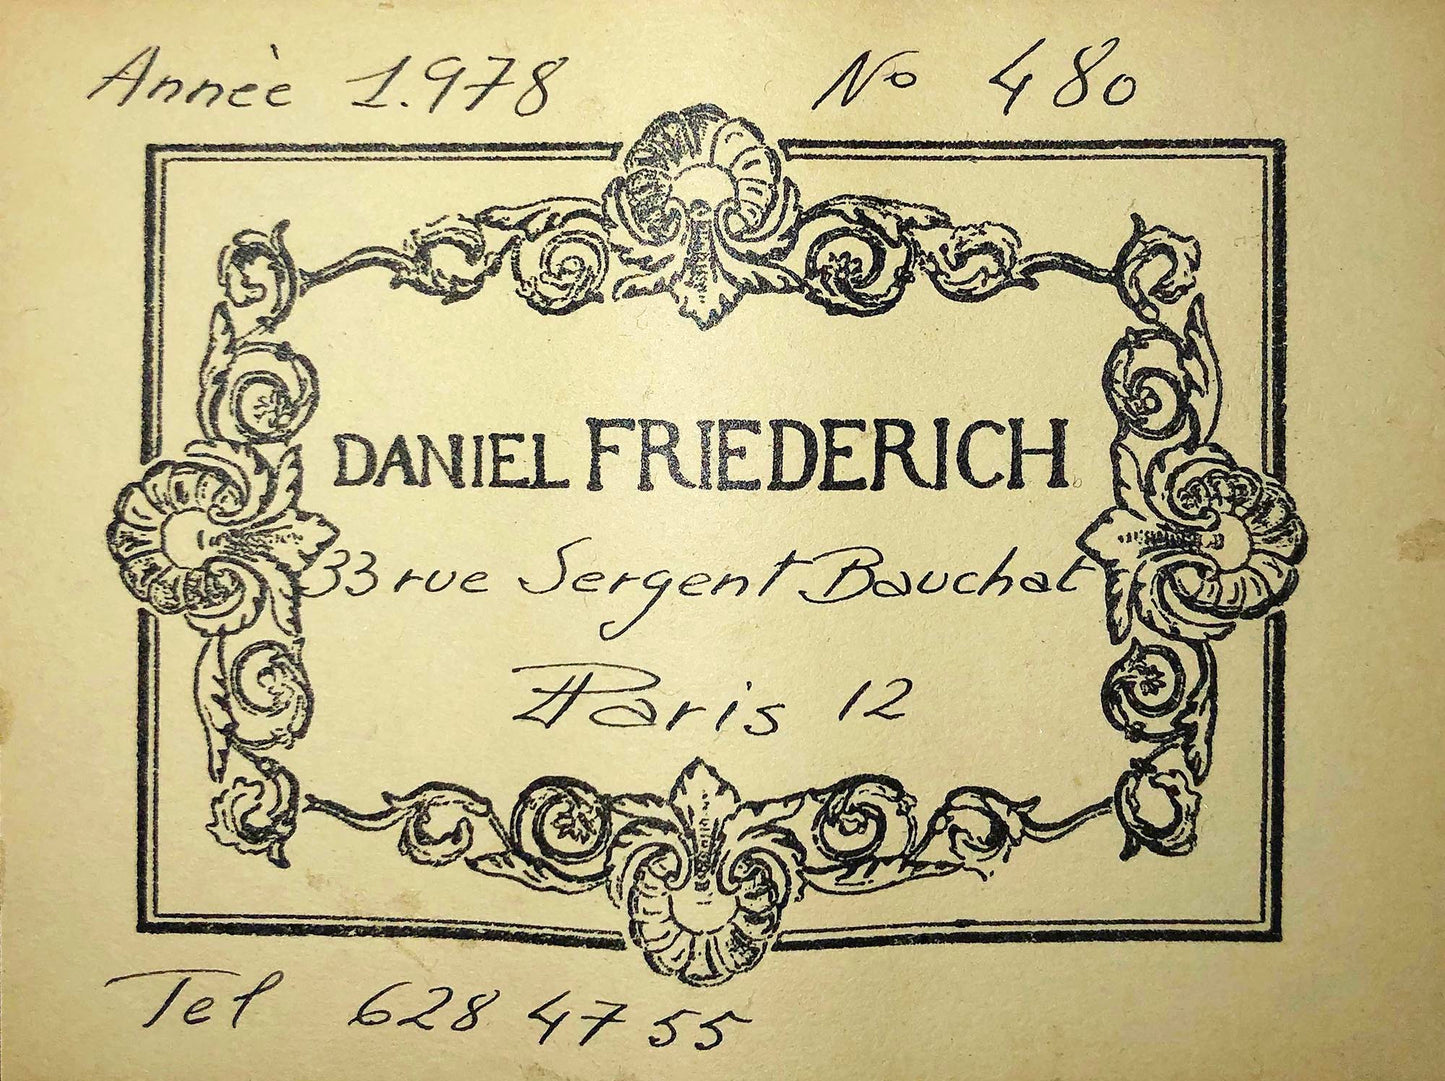 Annèe 1.978 No 480
DANIEL FRIEDERICH
33 rue Sergent Bauchat
Paris 12
Tel 628 47 55